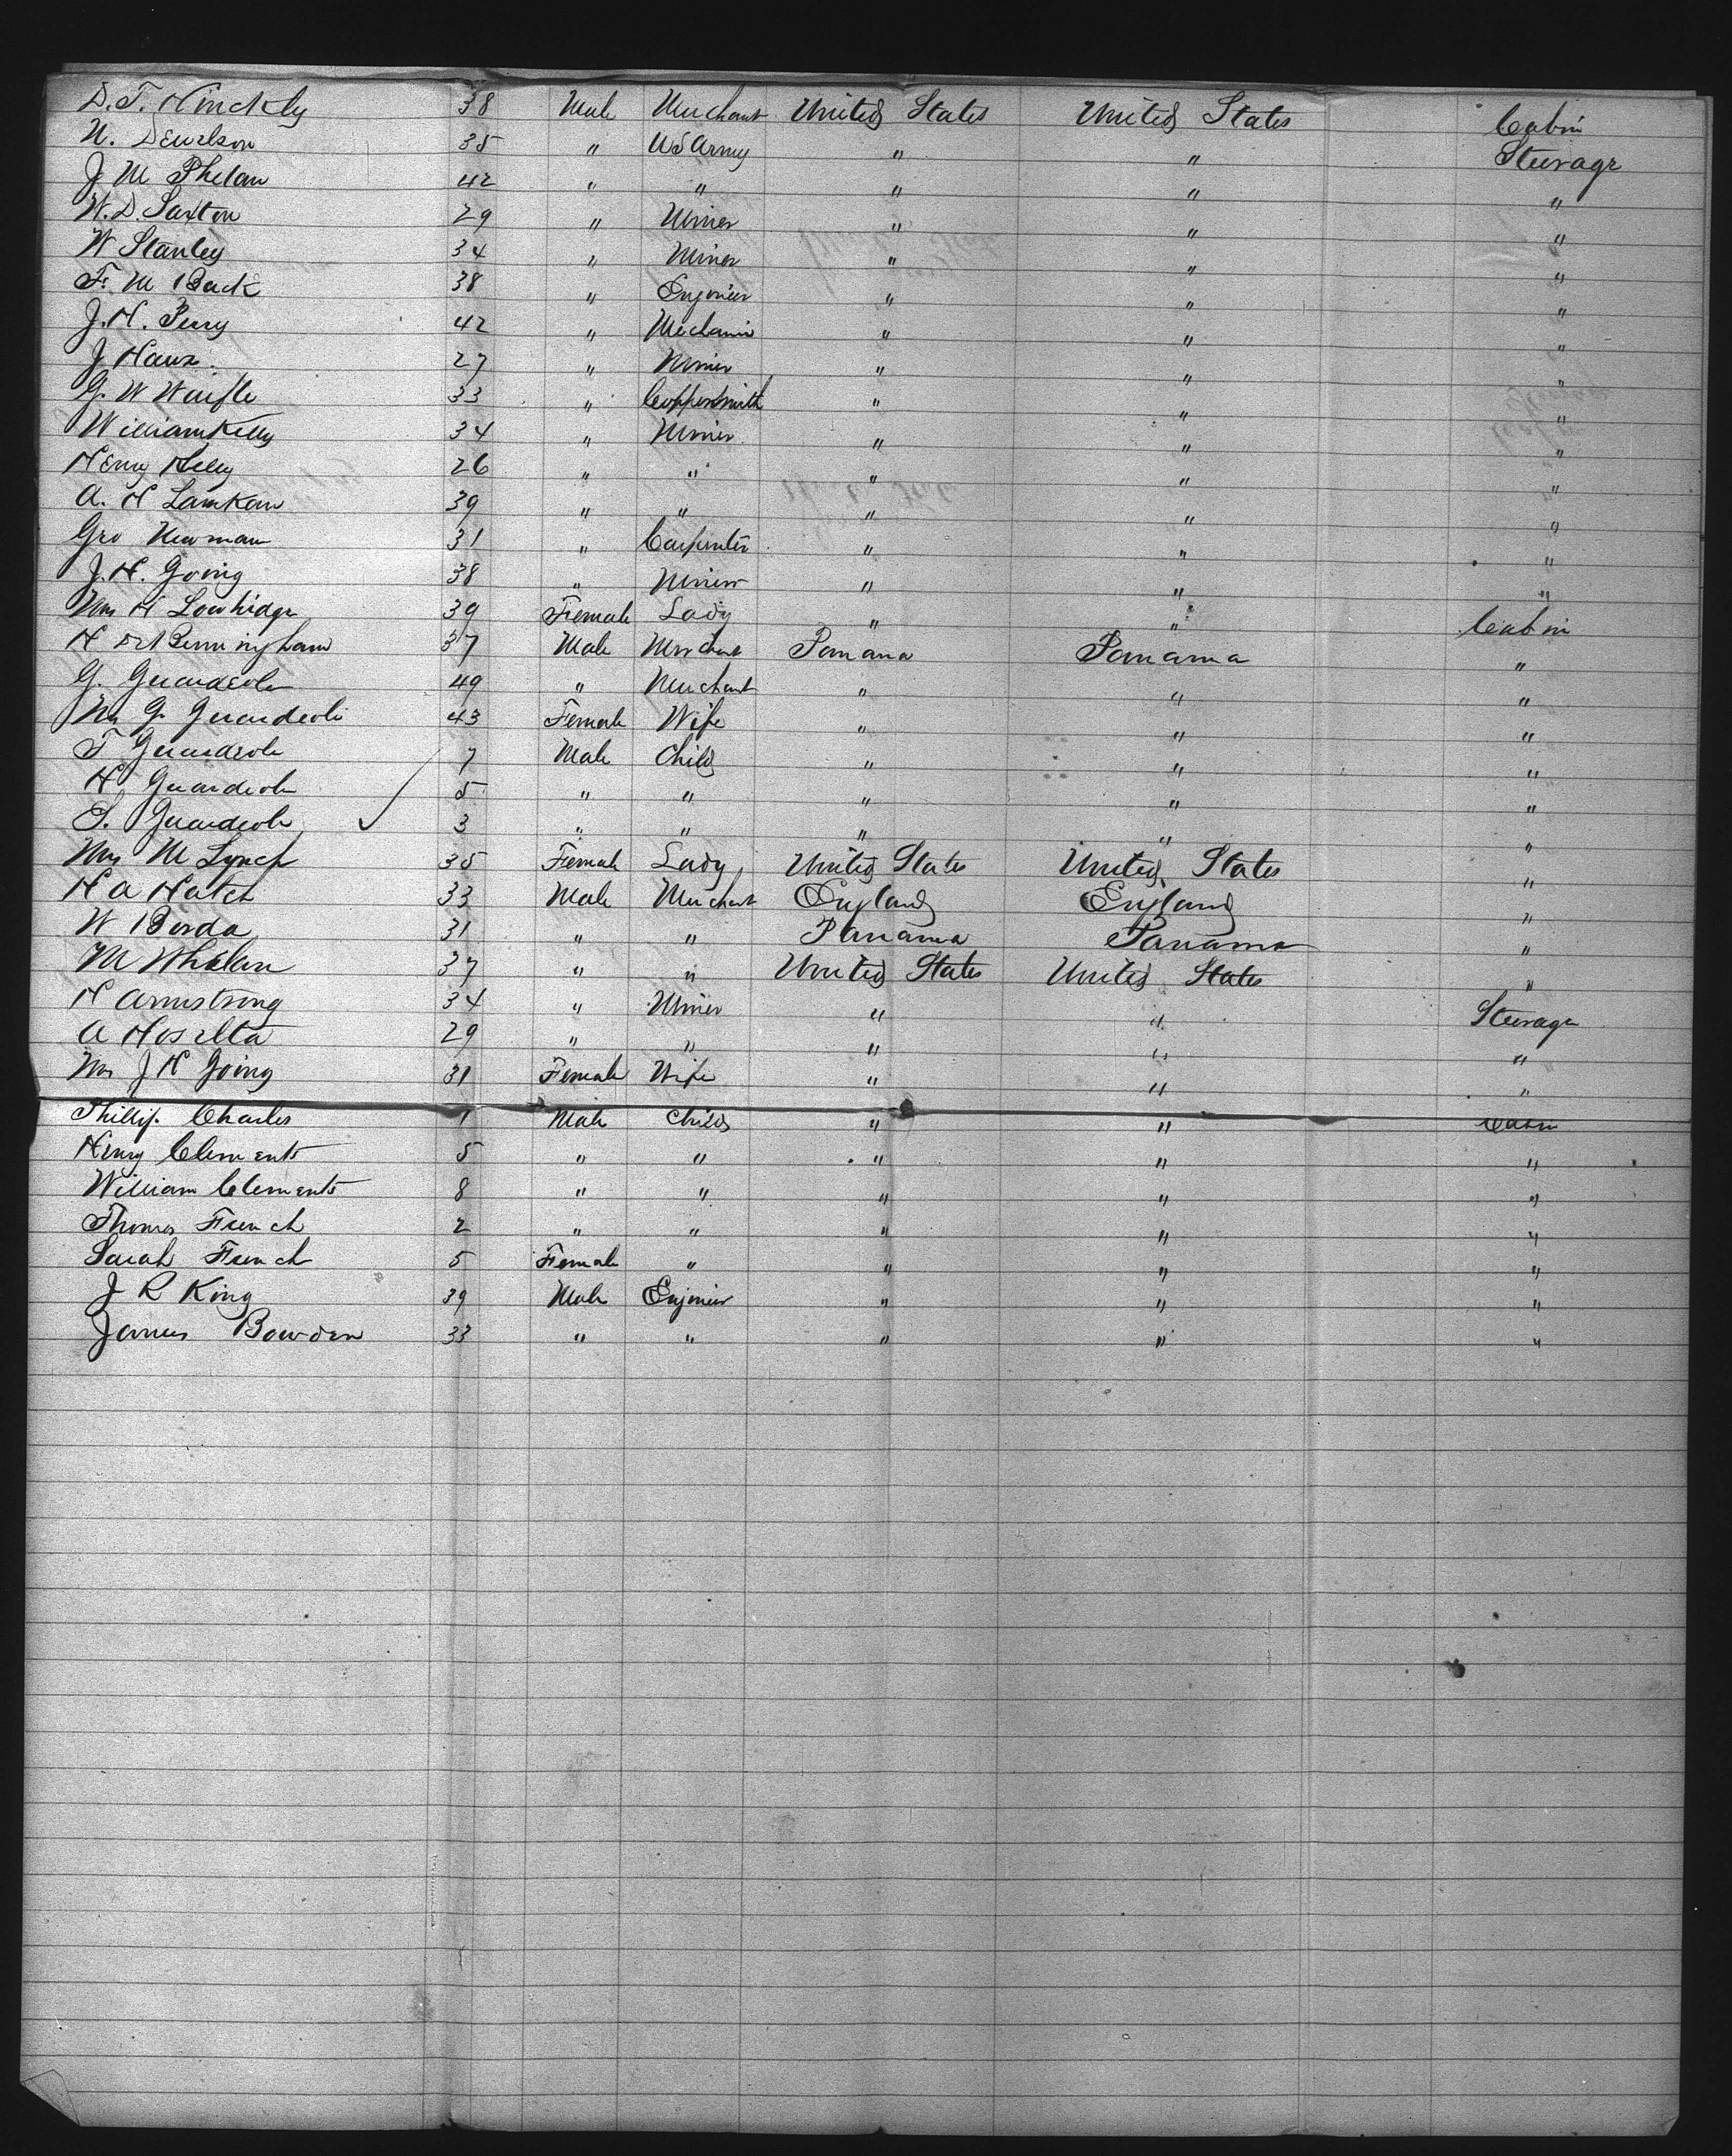 D. T. Hinckly 38 Male Merchant United States United States Cabin
N. Dewelson 35 " US Army " " Steerage
J M Phelan 42 " " " " "
W. D. Saxton 29 " Miner " " "
W Stanley 34 " Miner " " "
F. M Back 38 " Engineer " " "
J. H. Perry 42 " Mechanic " " "
J Haux. 27 " Miner " " "
G. W 33 " Coppersmith " " "
William Kelly 34 " Miner " " "
Henry 26 " " " " "
A. H Lamkan 39 " " " " "
Geo Newman 31 " Carpenter " " "
J. H. Going 38 " Miner " " "
Mrs H Lowhidge 39 Female Lady " " Cabin
H 37 Male Merchant Panama Panama "
G. Guardeole 49 " Merchant " " "
Mrs G. Guardeoli 43 Female Wife " " "
T Guardeole 7 Male Child " " "
H. Guardeole 5 " " " " "
S. Guardeole 3 " " " " "
Mrs M Lynch 35 Female Lady United States United States "
H A Hatch 33 Male Merchant England England "
W Borda 31 " " Panama Panama "
M Whelan 37 " " United States United States "
H Armstrong 34 " Miner " " Steerage
A 29 " " " " "
Mrs J H Going 31 Female Wife " " "
Phillip. Charles 1 Male Child " " Cabin
Henry Clements 5 " " " " "
William Clements 8 " " " " "
Thomas French 2 " " " " "
Sarah French 5 Female " " " "
J R King 39 Male Engineer " " "
James Bowden 33 " " " " "